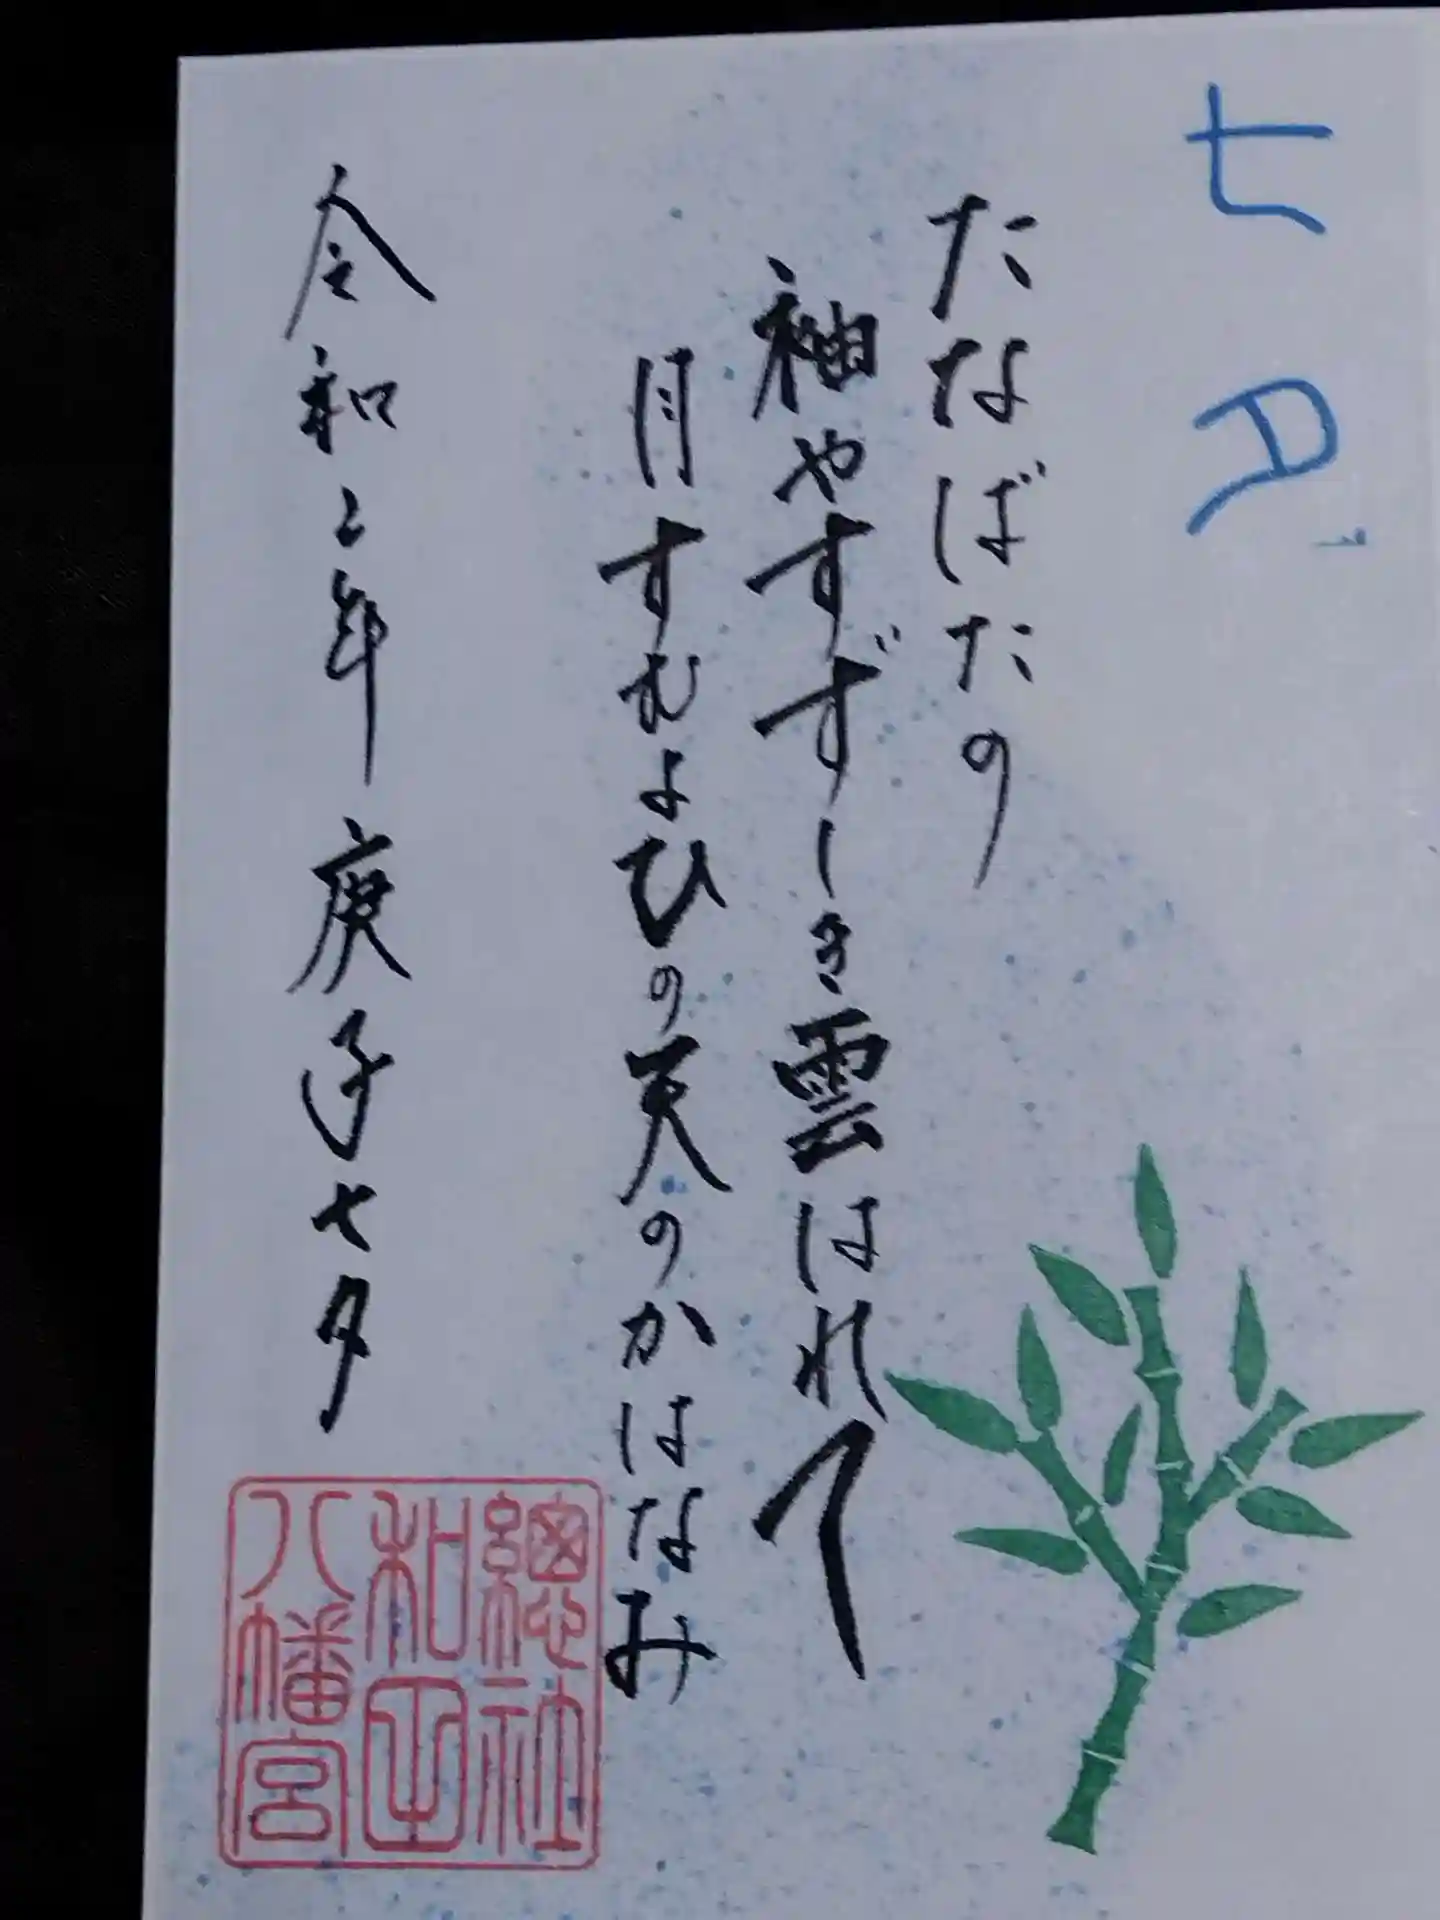 七月
たなばたの
袖やすずしき雲はれて
月すむよひの天のかはなみ
令和二年庚子七夕
總社
和田
八幡宮